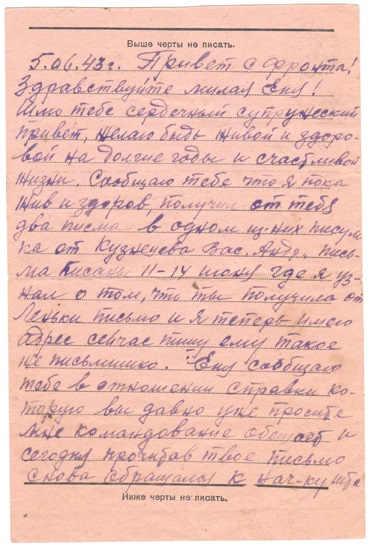 Выше черты не писать.
5.06.43г. Привет с фронта!
Здравствуйте милая Ену!
Шлю тебе сердечный супружеский
привет, желаю быть живой и здоро-
вой на долгие годы и счастливой
жизни. Сообщаю тебе что я пока
жив и здоров, получил от тебя
два писма в одном из них
ка от Кузнецова Вас. Андр. пись-
ма писаны 11-14 июня где я уз-
нал о том, что ты получила от
Леньки письмо и я теперь имею
адрес сейчас пишу ему такое
же письмишко. Ену сообщаю
тебе в отношении справки ко-
торую вы давно уже просите
мне командование обещает и
сегодня прочитав твое письмо
снова обращался к нач-ку шта
Ниже черты не писать.